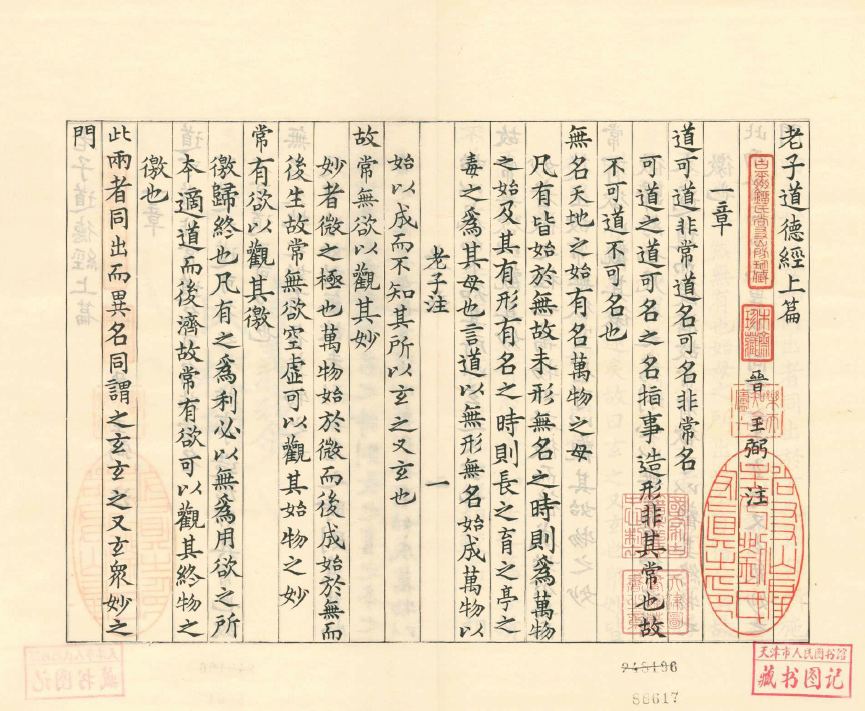 老子道德經上篇
晉王弼注
一章
道可道非常道名可名非常名
可道之道可名之名指事造形非其常也故
不可道不可名也
無名天地之始有名萬物之母
凡有皆始於無故未形無名之時則爲萬物
之始及其有形有名之時則長之育之亭之
毒之爲其母也言道以無形無名始成萬物以
老子注
一
始以成而不知其所以玄之又玄也
故常無欲以觀其妙
妙者微之極也萬物始於微而後成始於無而
後生故常無欲空虛可以觀其始物之妙
常有欲以觀其徼
徼歸終也凡有之爲利必以無爲用欲之所
本適道而後濟故常有欲可以觀其終物之
徼也
此兩者同出而異名同謂之玄玄之又玄衆妙之
門
天津市人民图书馆
藏书图记
245196
86617